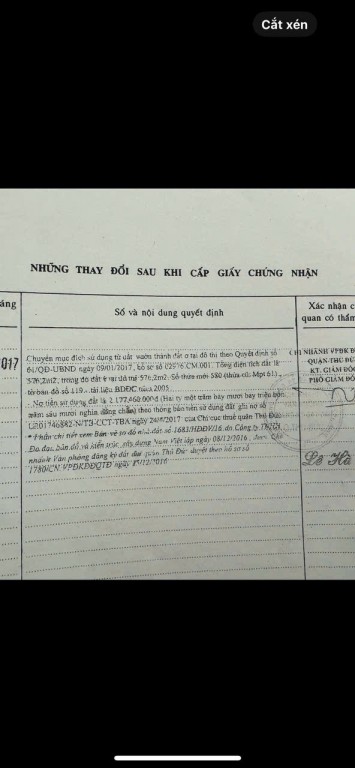 Cắt xén
NHỮNG THAY ĐỔI SAU KHI CẤP GIẤY CHỨNG NHẬN
áng
Số và nội dung quyết định
Xác nhận c
quan có thẩm
2017
Chuyển mục đích sử dụng từ đất vườn thành đất ở tại đô thị theo Quyết định số
61/QĐ-UBND ngày 09/01/2017, hồ sơ số 02976.CM.001. Tổng diện tích đất là
576,2m2, trong đó đất ở tại đô thị 576,2m2. Số thửa mới 580 (thửa cũ: Mpt 61),
tờ bản đồ số 119 - tài liệu BĐĐC năm 2005.
- Nợ tiền sử dụng đất là 2.177.460.000đ (Hai tỷ một trăm bảy mươi bảy triệu bốn
trăm sáu mươi nghìn đồng chẵn) theo thông báo tiền sử dụng đất ghi nợ số
/TB-CCT-TBA ngày /2017 của Chi cục thuế quận Thủ Đức
* Phần chi tiết xem Bản vẽ sơ đồ nhà đất số 1681/HĐĐV/16 do Công ty TNHH
Đo đạc bản đồ và kiến trúc xây dựng Nam Việt lập ngày 08/12/2016, được Chi
nhánh Văn phòng đăng ký đất đai quận Thủ Đức duyệt theo hồ sơ số
1780/CN.VPĐKĐĐQTĐ ngày /12/2016
CHI NHÁNH VPĐK Đ
QUẬN THỦ ĐỨ
KT. GIÁM ĐỐ
PHÓ GIÁM ĐỐ
Lê Hà